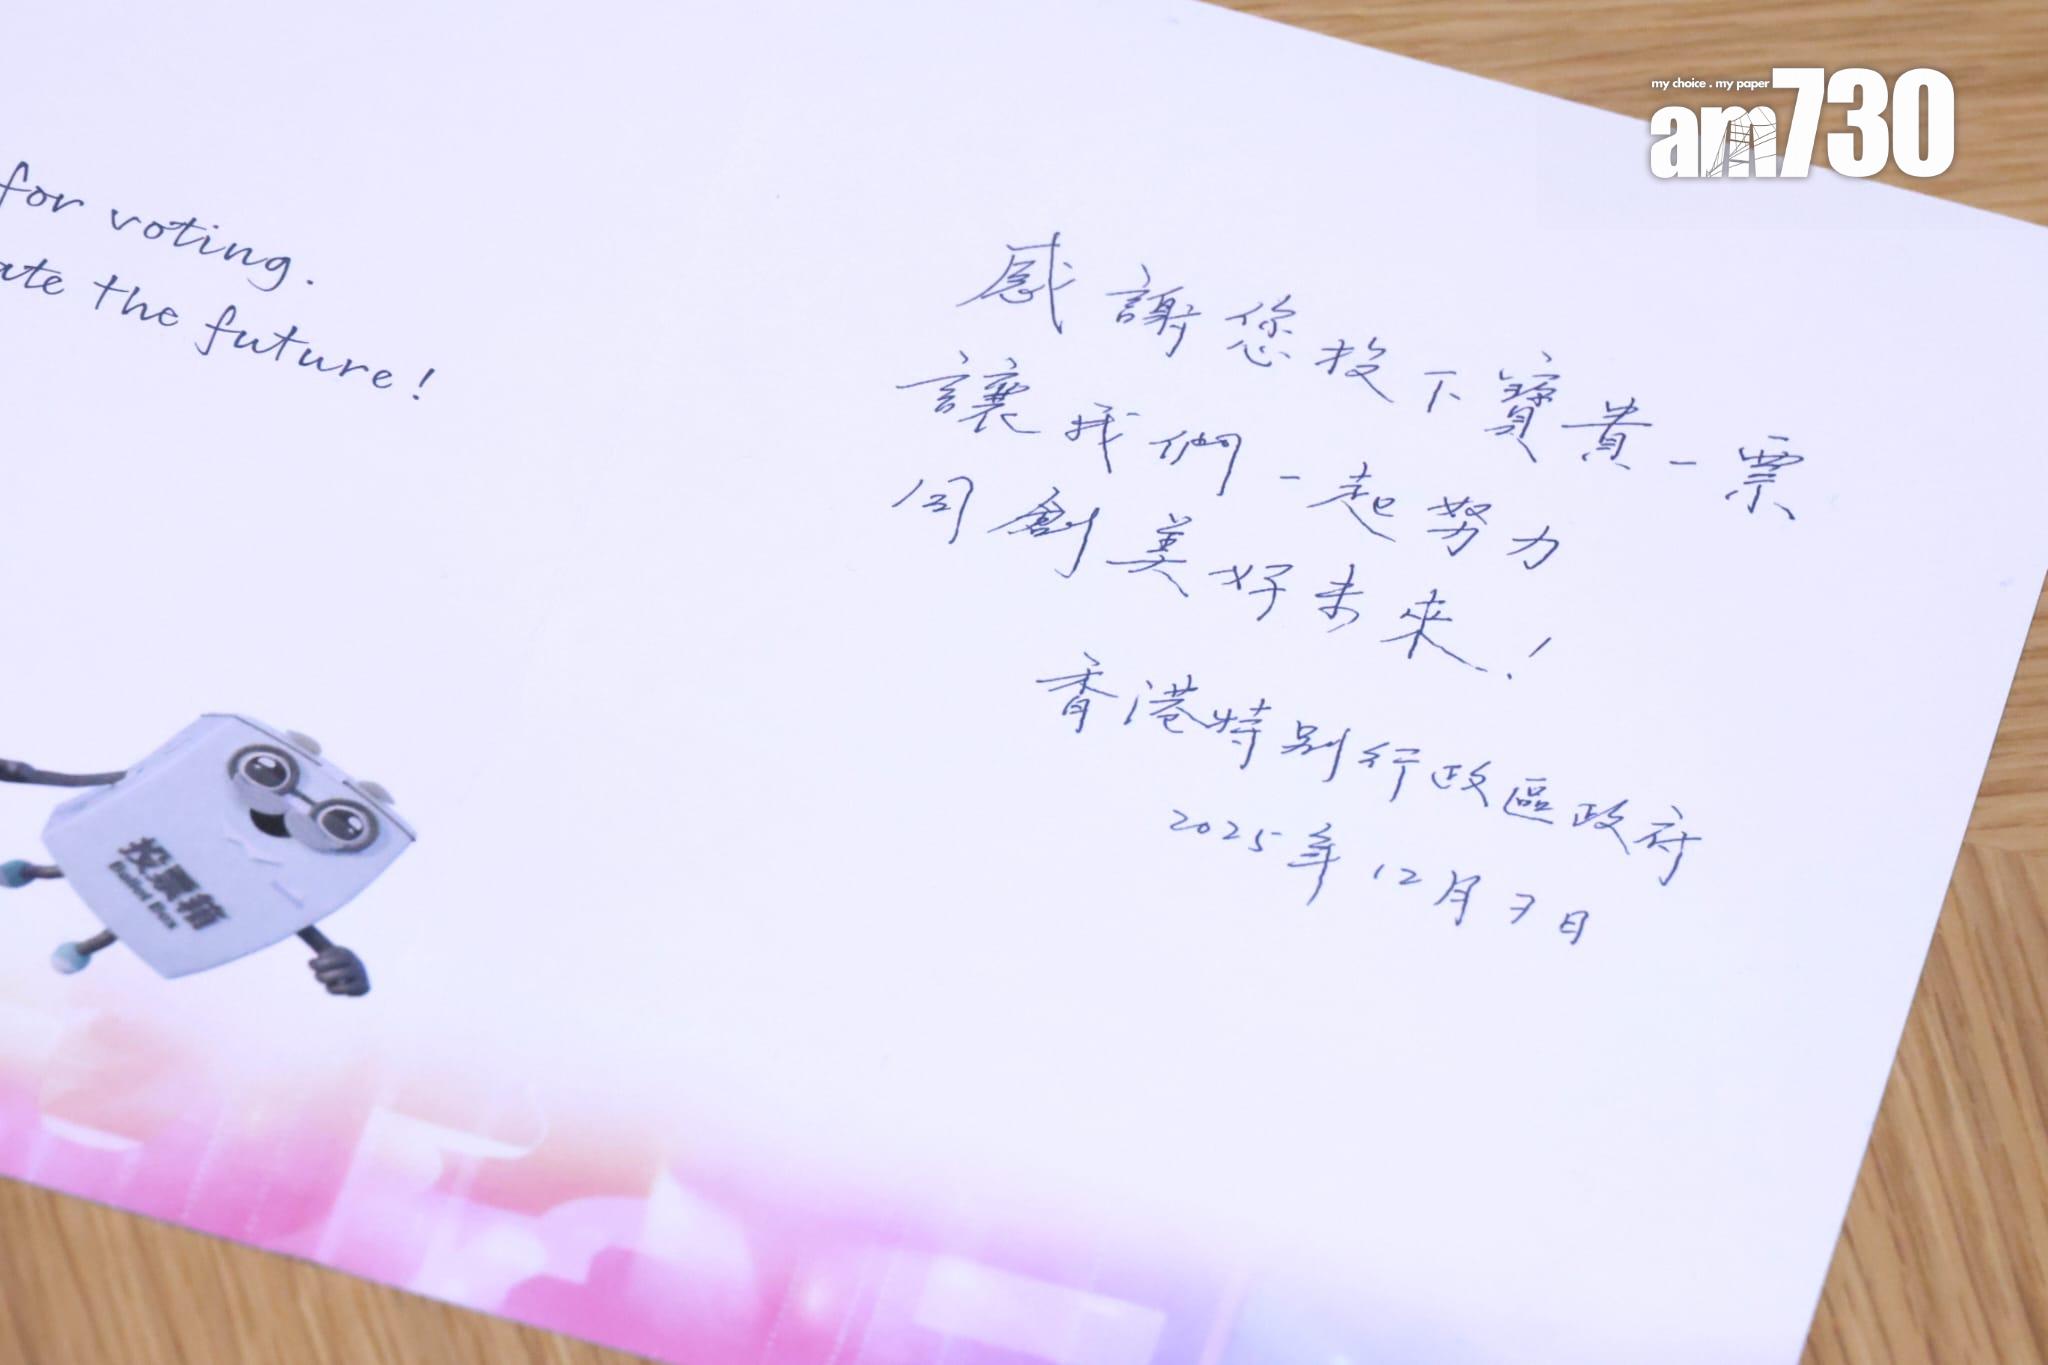 my choice . my paper
am730
for voting.
ate the future!
感謝您投下寶貴一票
讓我們一起努力
同創美好未來！
香港特別行政區政府
2025年12月7日
投票箱
Ballot Box